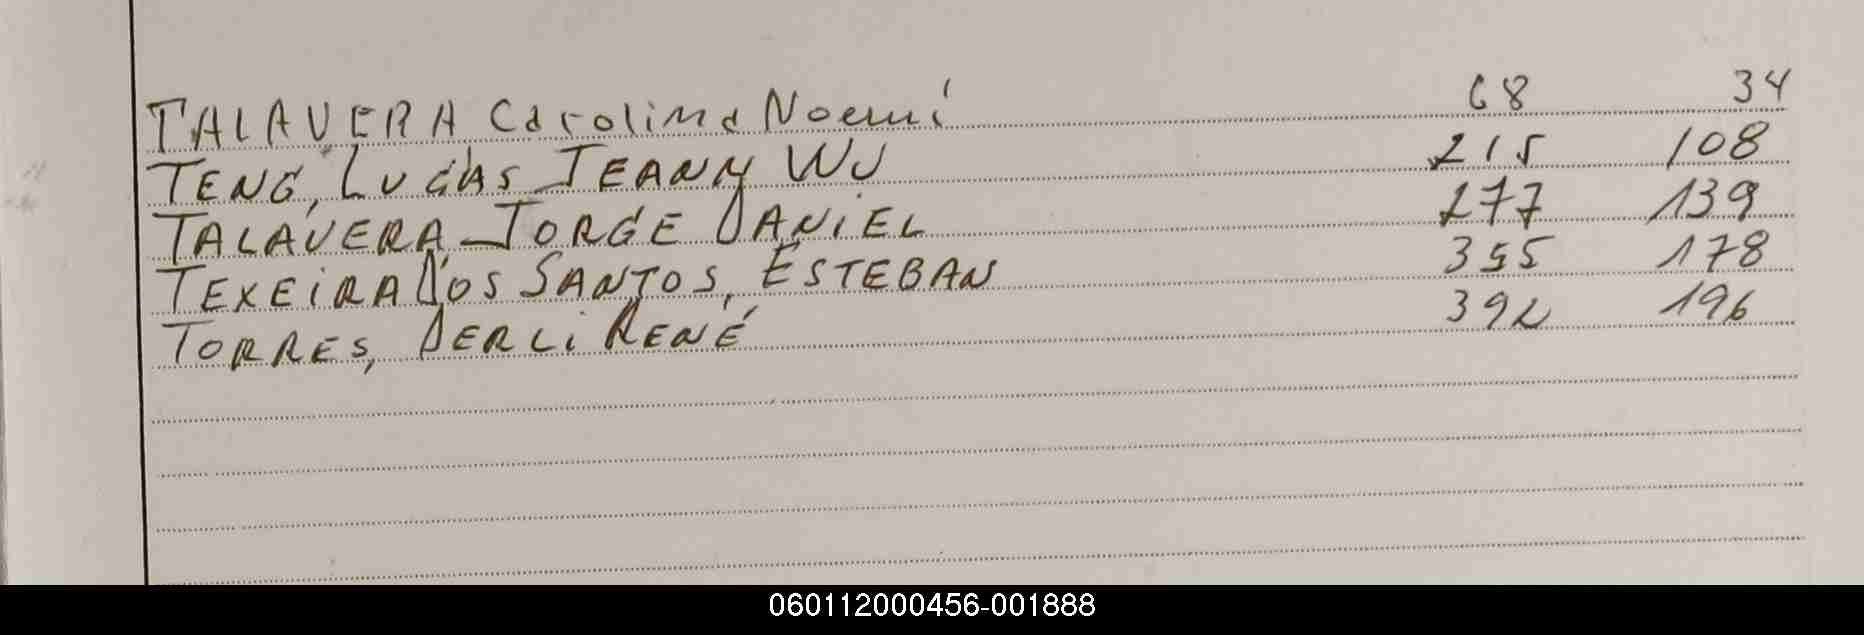 TALAVERA Carolina Noemí 68 34
TENG, LUCAS JEANN WU 215 108
TALAVERA JORGE DANIEL 277 139
TEXEIRA DOS SANTOS, ESTEBAN 355 178
TORRES, DERLI RENÉ 392 196
060112000456-001888